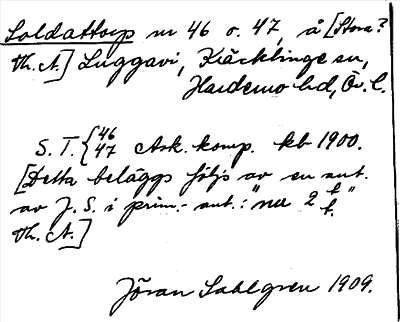 Soldattorp nr 46 o. 47, å [Stora?
Th. A.] Luggavi, Kräcklinge sn,
Hardemo hd, Ör. l.
S. T. {46 47 Ask. komp. kb 1900.
[Detta belägg följs av en ant.
av J. S. i prim.-ant.: "nu 2 
Th. A.]
Jöran Sahlgren 1909.